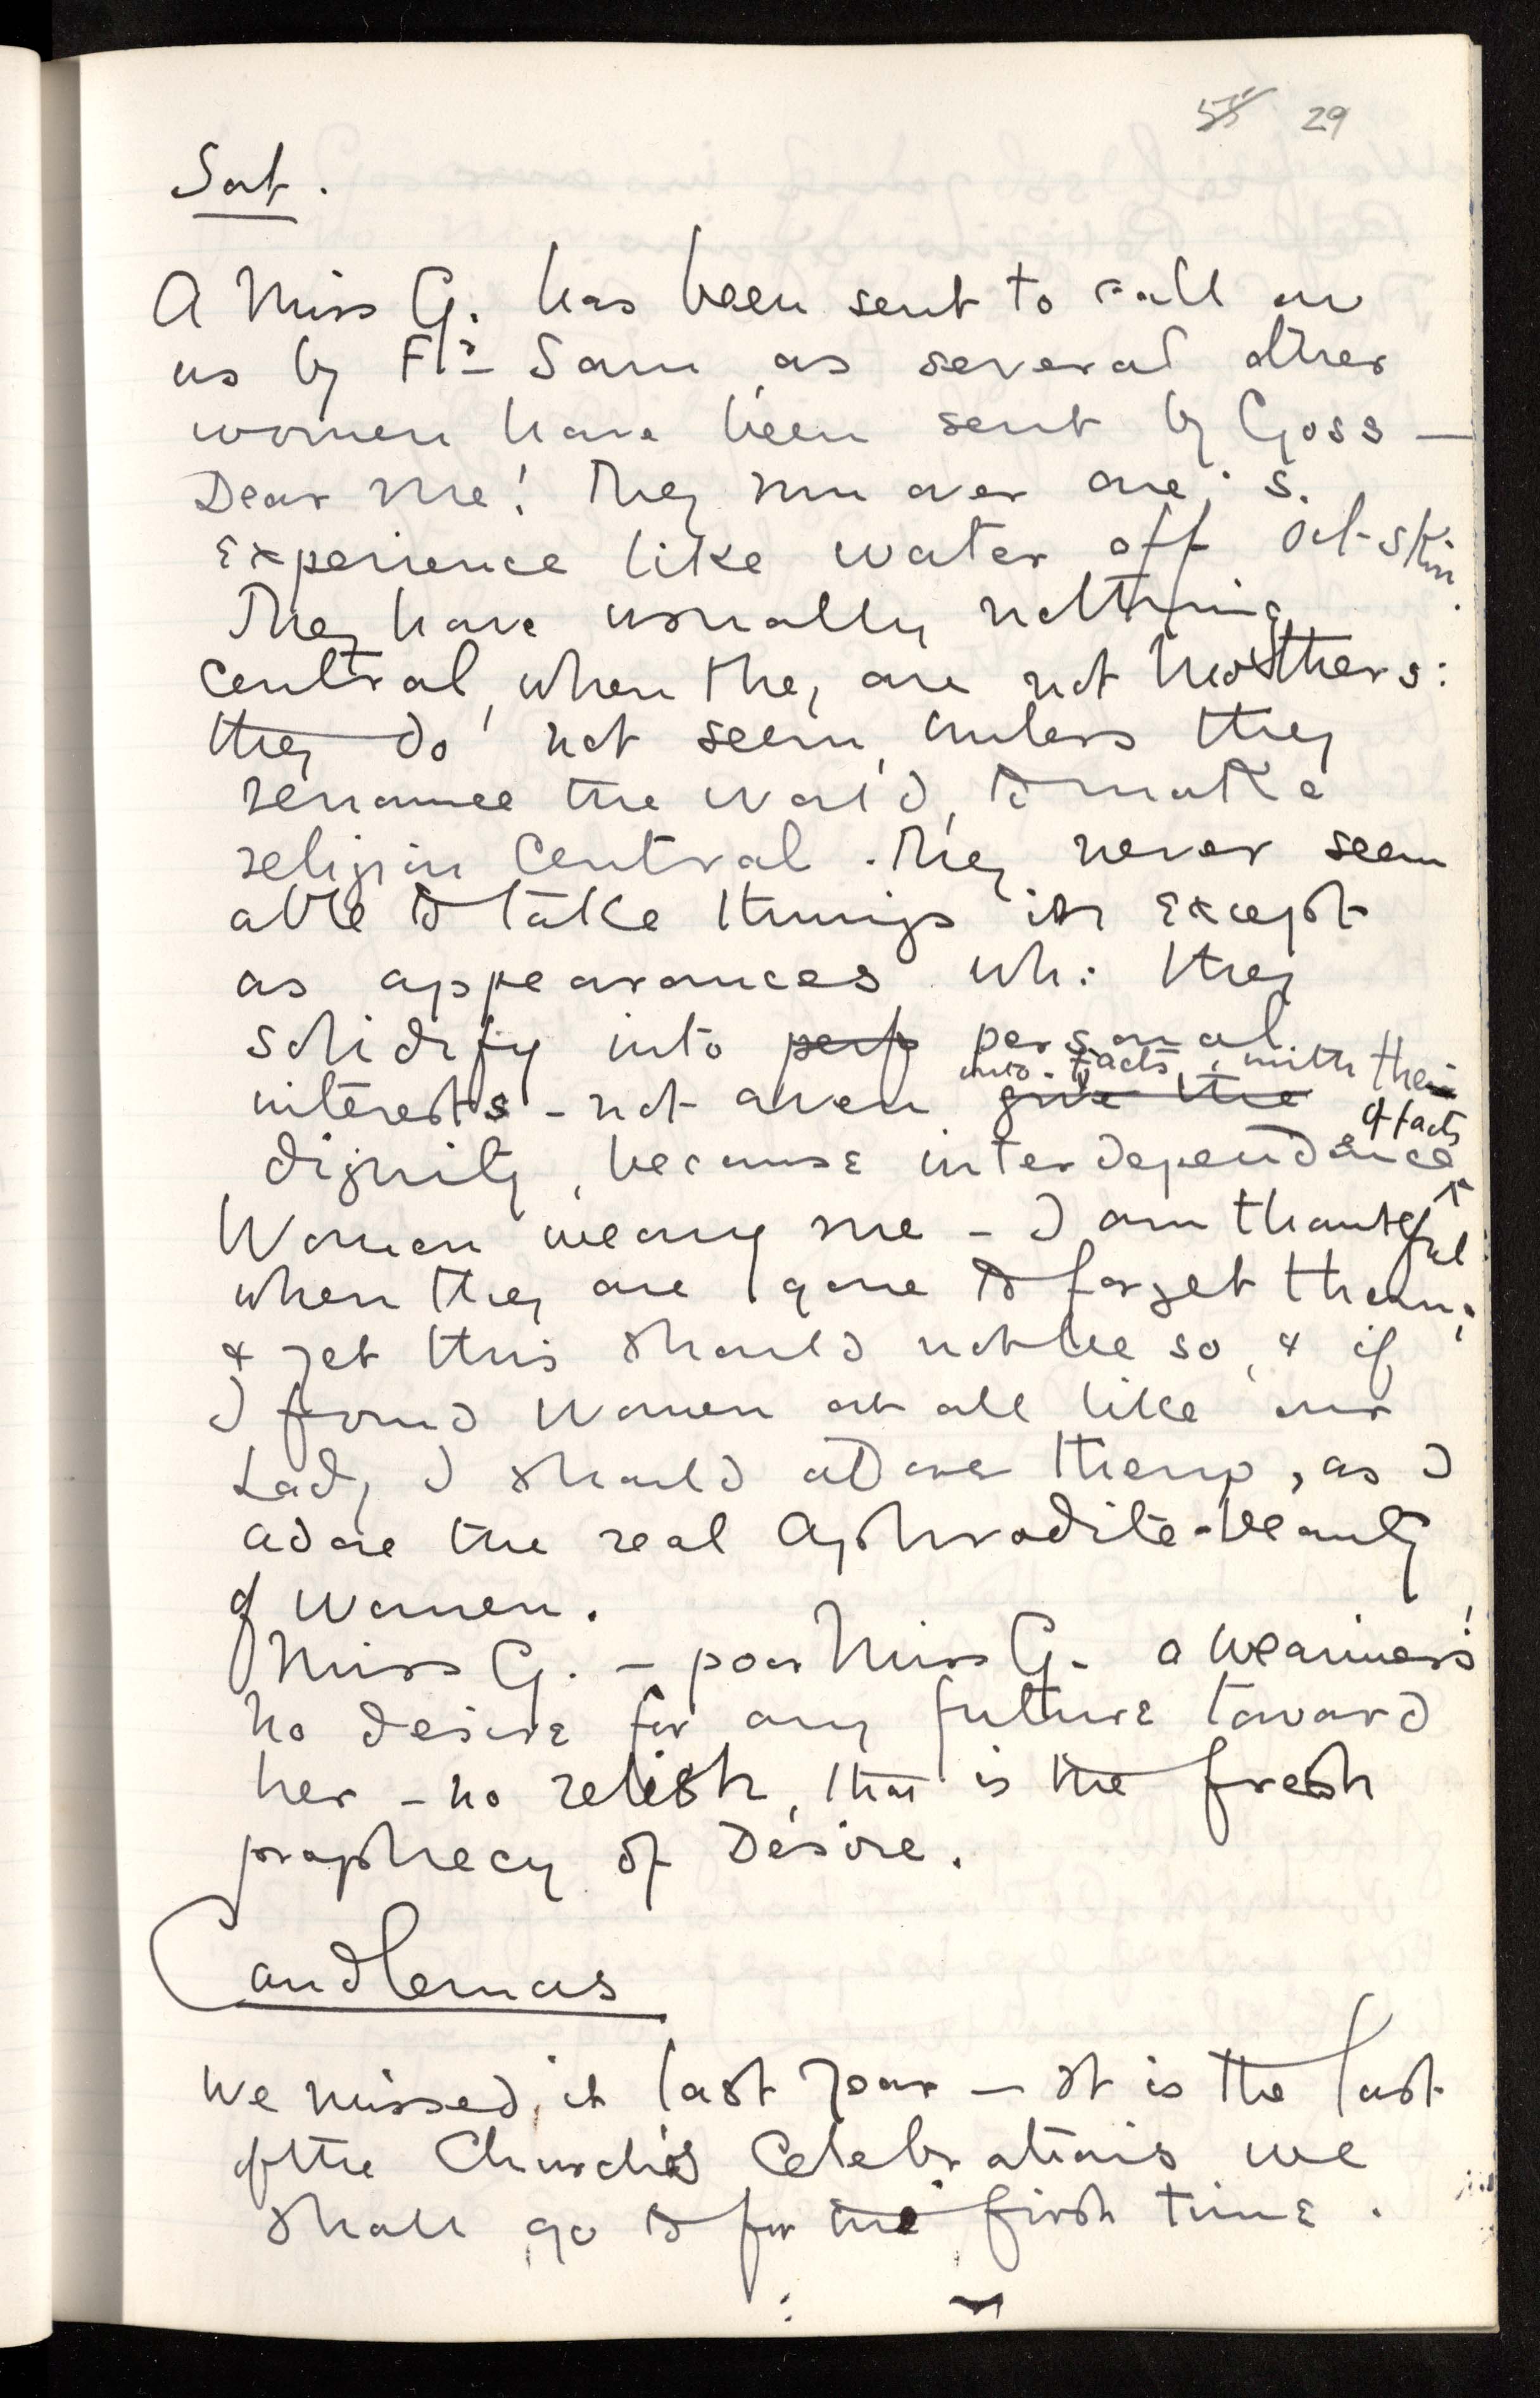 55 29
Sat.
A Miss G. has been sent to call on
us by Fr Sam, as several other
women have been sent by Goss —
Dear me! They run over one's
experience like water off oil-skin.
They have usually nothing
central, when they are not mothers:
they do not seem, unless they
renounce the world, to make
religion central. They never seem
able to take things in except
as appearances wh: they
solidify into perf personal
into facts, with their
interests - not even give the
of facts
dignity, because interdependence
Women weary me - I am thankful
when they are gone to forget them;
& yet this should not be so, & if
I found women at all like our
Lady I should adore them, as I
adore the real Aphrodite-beauty
of women.
Miss G. - poor Miss G. a weariness!
No desire for any future toward
her - no relish, that is the fresh
prophecy of Desire.
Candlemas
We missed it last year — It is the last
of the Church's Celebrations we
shall go to for the first time.